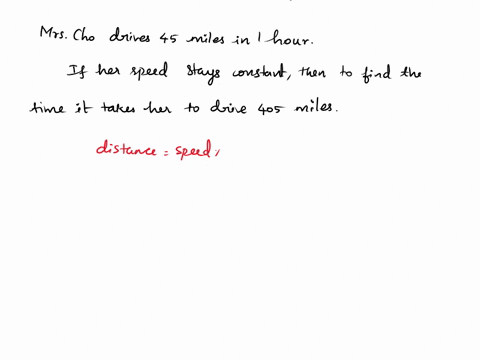 Mrs. Cho drives 45 miles in 1 hour.
If her speed stays constant, then to find the
time it takes her to drive 405 miles.
distance = speed